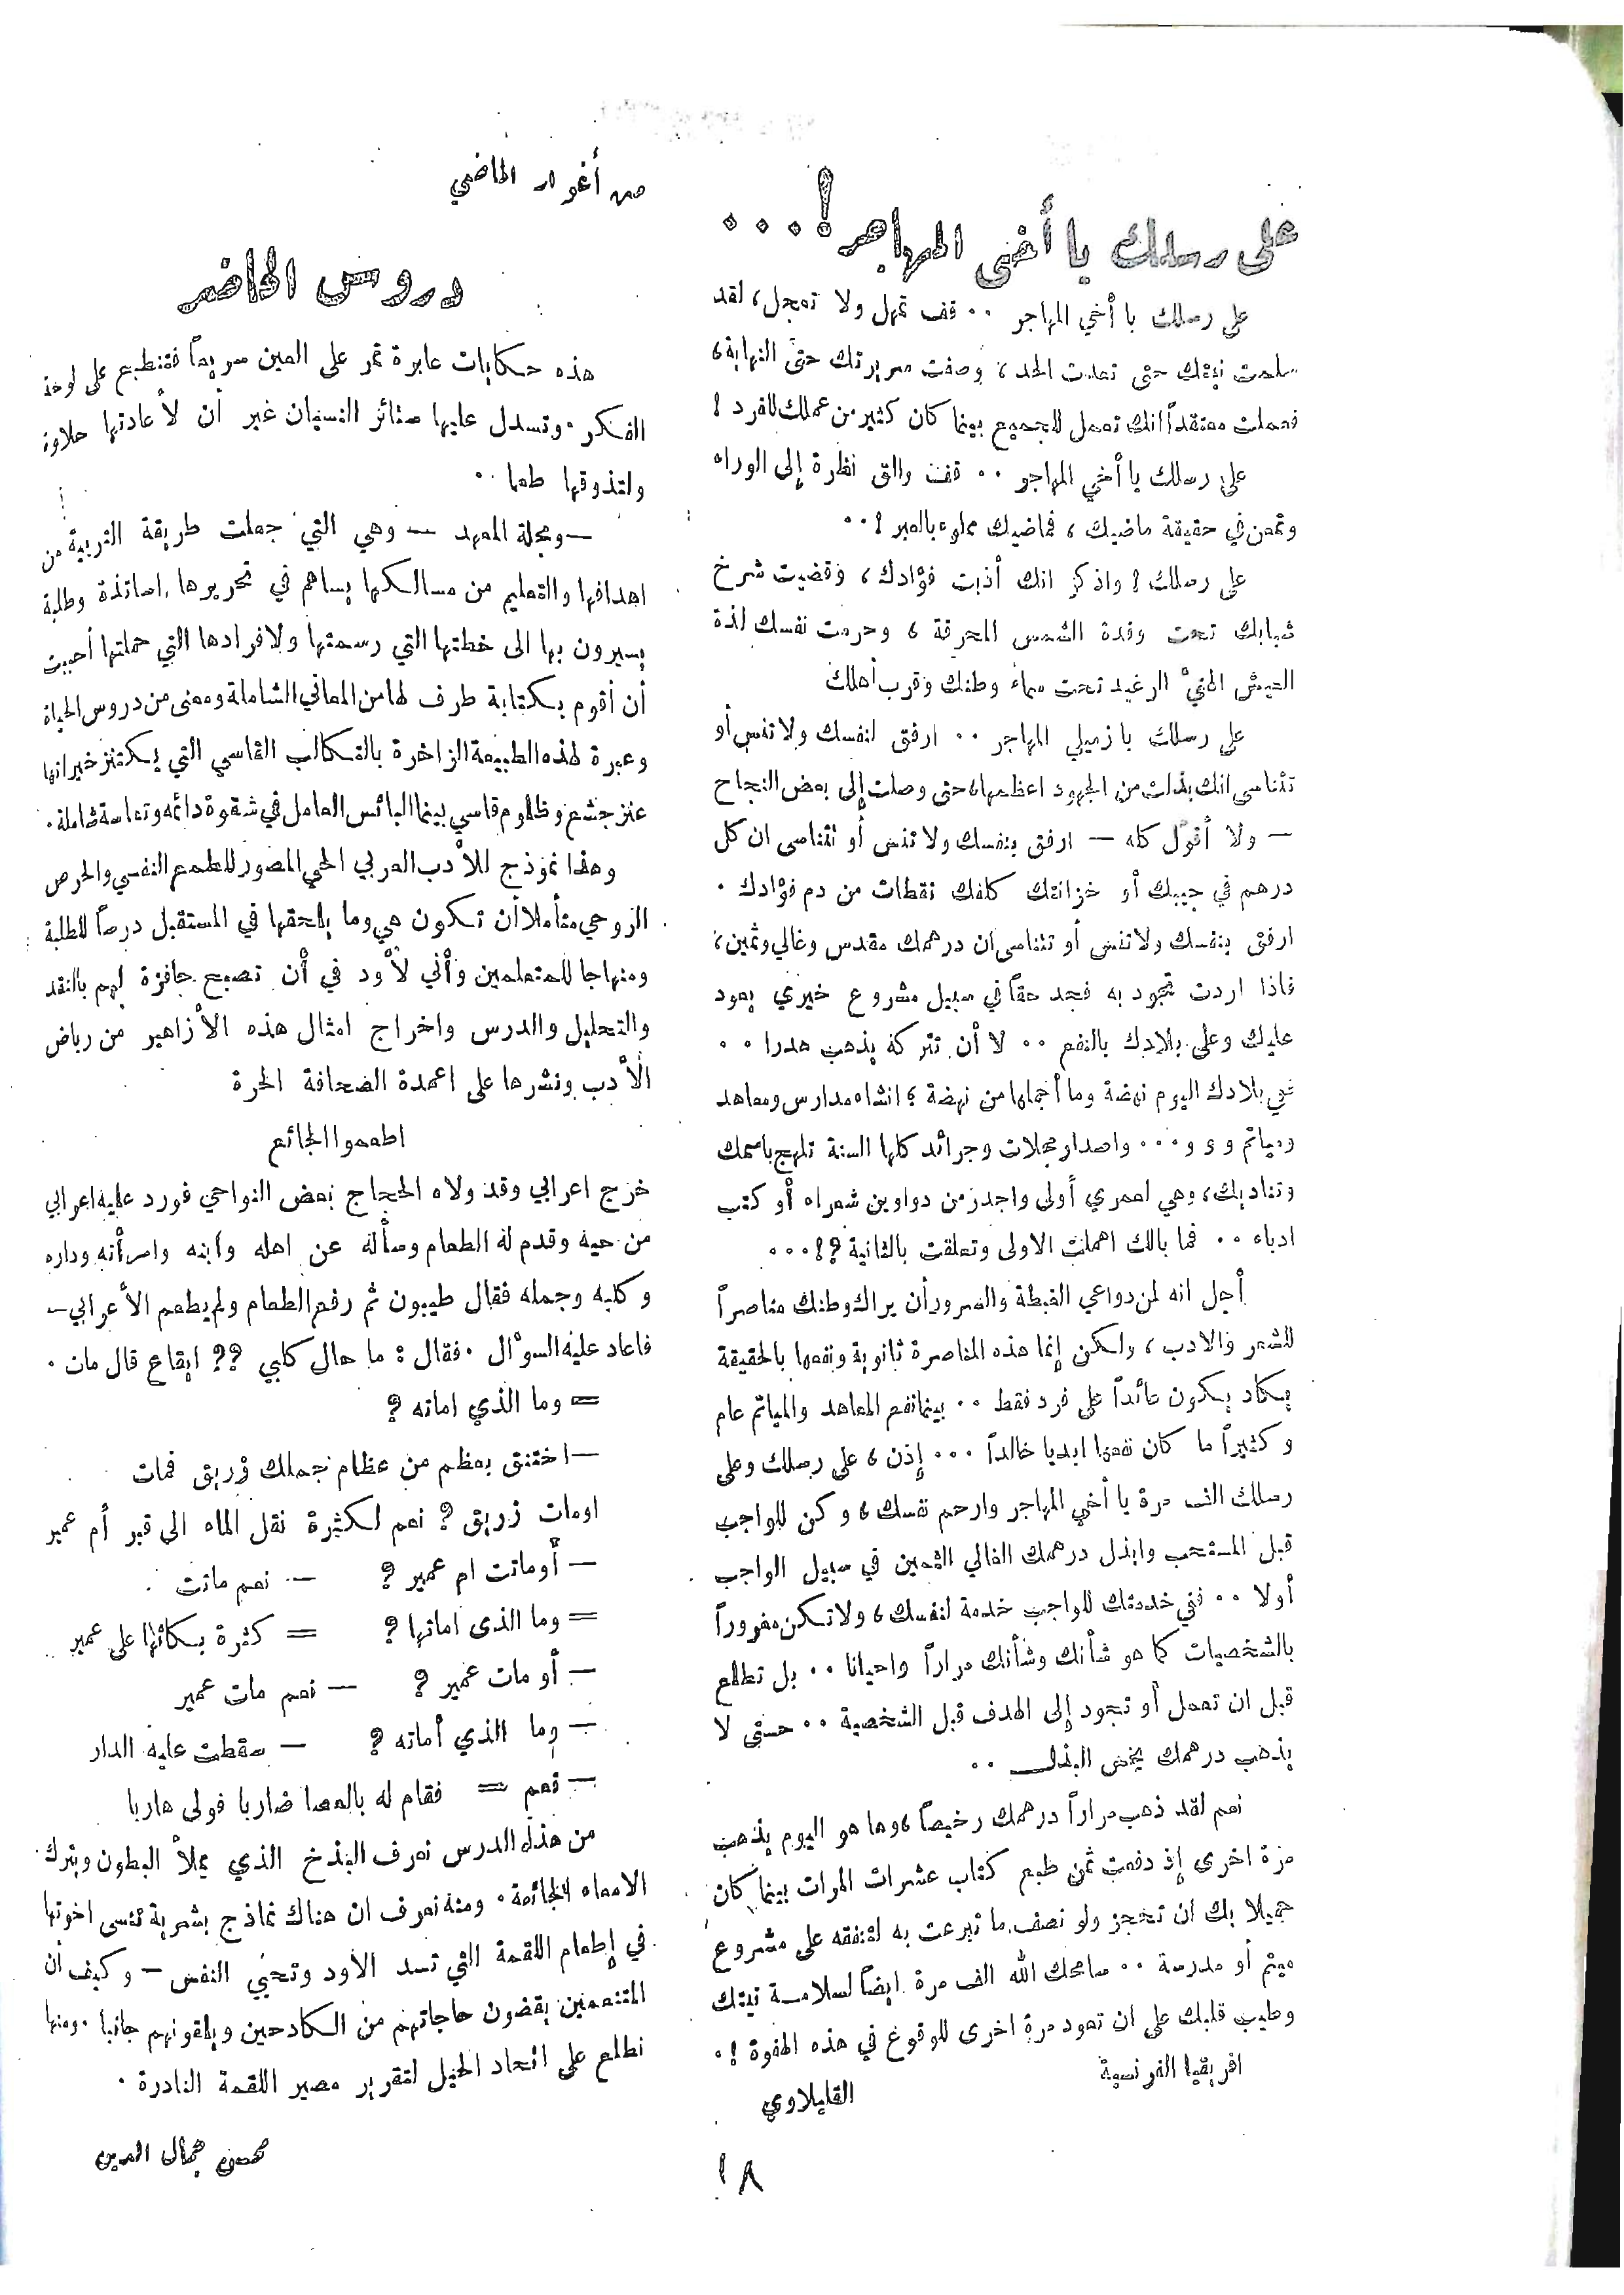 على رسلك يا أخي المهاجر!...
على رسلك يا أخي المهاجر .. قف تمهل ولا تعجل، لقد
سلمت نيتك حتى تعدت الحد، وصفت سريرتك حتى النهاية،
فعملت معتقداً انك تعمل للجميع بينما كان كثير من عملك للفرد !
على رسلك يا أخي المهاجر .. قف والق نظارة إلى الوراء
وتمعن في حقيقة ماضيك ، فماضيك مملوء بالعبر ! ..
على رسلك ! واذكر انك أذبت فؤادك ، وقضيت شرخ
شبابك تحت وقدة الشمس المحرقة ، وحرمت نفسك لذة
العيش الهنيء الرغيد تحت سماء وطنك وقرب أهلك
على رسلك يا زميلي المهاجر .. ارفق لنفسك ولا تنس أو
تتناسى انك بذلت من الجهود اعظمها، حتى وصلت إلى بعض النجاح
— ولا أقول كله — ارفق بنفسك ولا تنس أو تتناسى ان كل
درهم في جيبك أو خزانتك كلفك نقطات من دم فؤادك .
ارفق بنفسك ولا تنس أو تتناسى ان درهمك مقدس وغالي وثمين ،
فاذا اردت تجود به فجد حقاً في سبيل مشروع خيري يعود
عليك وعلى بلادك بالنفع .. لا أن تتركه يذهب هدرا ..
ففي بلادك اليوم نهضة وما أجملها من نهضة ؛ انشاء مدارس ومعاهد
ومياتم و و و ... واصدار مجلات وجرائد كلها السنة تلهج باسمك
وتناديك ، وهي لعمري أولى واجدر من دواوين شعراء أو كتب
ادباء .. فما بالك اهملت الاولى وتعلقت بالثانية ؟!...
أجل انه لمن دواعي الغبطة والسرور أن يراك وطنك مناصراً
للشعر والادب ، ولكن إنما هذه المناصرة ثانوية ونفعها بالحقيقة
يكاد يكون عائداً على فرد فقط .. بينما نفع المعاهد والمياتم عام
وكثيراً ما كان نفعها ابديا خالداً ... إذن ، على رسلك وعلى
رسلك الف مرة يا أخي المهاجر وارحم نفسك ، وكن للواجب
قبل المستحب وابذل درهمك الغالي الثمين في سبيل الواجب
أولا .. ففي خدمتك للواجب خدمة لنفسك ، ولا تكن مغروراً
بالشخصيات كما هو شأنك وشأنك مراراً واحيانا .. بل تطلع
قبل ان تعمل أو تجود إلى الهدف قبل الشخصية .. حتى لا
يذهب درهمك بخس البذل ..
نعم لقد ذهب مراراً درهمك رخيصاً ، وها هو اليوم يذهب
مرة اخرى إذ دفعت ثمن طبع كتاب عشرات المرات بينما كان
جميلا بك ان تحجز ولو نصف ما تبرعت به لتنفقه على مشروع
ميتم أو مدرسة .. سامحك الله الف مرة ايضاً لسلامة نيتك
وطيب قلبك على ان تعود مرة اخرى للوقوع في هذه الهفوة ! .
افريقيا الفرنسية
القليلاوي
من أغوار الماضي
دروس الحاضر
هذه حكايات عابرة تمر على العين سريعاً فتنطبع على لوحة
الفكر . وتسدل عليها ستائر النسيان غير أن لأعادتها حلاوة
ولتذوقها طعما ..
— ومجلة المعهد — وهي التي جعلت طريقة التربية من
اهدافها والتعليم من مسالكها يساهم في تحريرها اساتذة وطلبة
يسيرون بها الى خطتها التي رسمتها ولافرادها التي حملتها أحببت
أن أقوم بكتابة طرف لها من المعاني الشاملة ومعنى من دروس الحياة
وعبرة لهذه الطبيعة الزاخرة بالتكالب القاسي التي يكتنز خيراتها
عنز جشع وظلوم قاسي بينما البائس العامل في شقوة دائمه وتعاسة شاملة .
وهذا نموذج للأدب العربي الحي المصور للطمع النفسي والحرص
الروحي متأملا أن تكون هي وما يلحقها في المستقبل درساً للطلبة
ومنهاجا للمتعلمين وأني لأود في أن تصبح حافزة لهم بالنقد
والتحليل والدرس واخراج امثال هذه الأزاهير من رياض
الأدب ونشرها على اعمدة الصحافة الحرة
اطعموا الجائع
خرج اعرابي وقد ولاه الحجاج بعض النواحي فورد عليه اعرابي
من حيه وقدم له الطعام وسأله عن اهله وابنه وامرأته وداره
وكلبه وجمله فقال طيبون ثم رفع الطعام ولم يطعم الأعرابي —
فاعاد عليه السؤال . فقال : ما حال كلبي ؟؟ ايقاع قال مات .
= وما الذي اماته ؟
— اختنق بعظم من عظام جملك زريق فمات
اومات زريق ؟ نعم لكثرة نقل الماء الى قبر أم عمير
— أوماتت ام عمير ؟ — نعم ماتت .
= وما الذى اماتها ؟ = كثرة بكائها على عمير ..
— أو مات عمير ؟ — نعم مات عمير
— وما الذي أماته ؟ — سقطت عليه الدار
— نعم = فقام له بالعصا ضاربا فولى هاربا
من هذا الدرس نعرف البذخ الذي يملأ البطون ويترك
الامعاء الجائعة . ومنه نعرف ان هناك نماذج بشرية تنسى اخوتها
في إطعام اللقمة التي تسد الاود وتحيي النفس — وكيف ان
المتنعمين يقضون حاجاتهم من الكادحين ويلقونهم جانبا . ومنها
نطلع على اتحاد الحيل لتقرير مصير اللقمة النادرة .
محسن جمال الدين
١٨